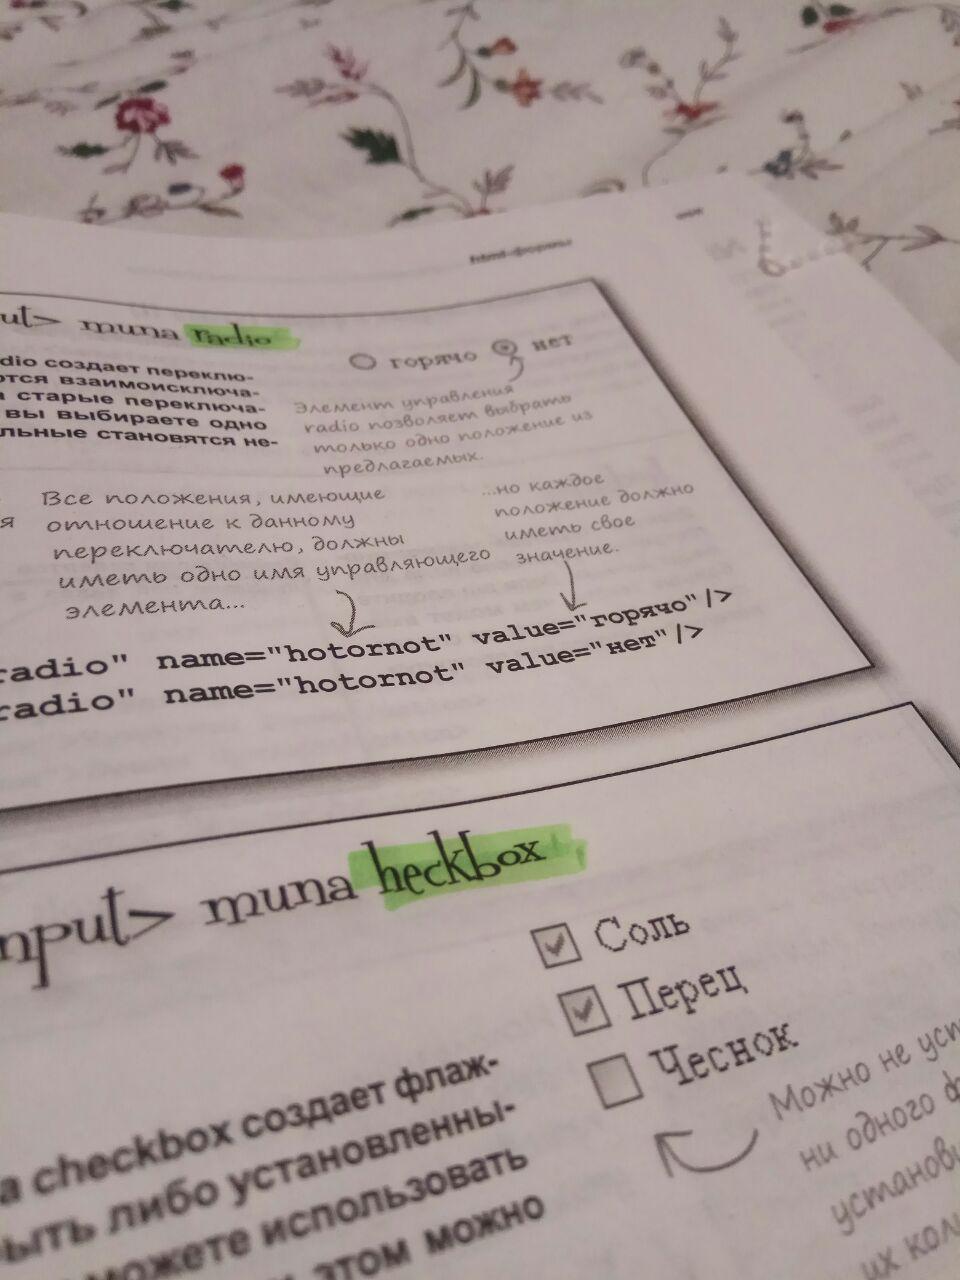 html-формы
ut> типа radio
dio создает переклю-
тся взаимоисключа-
старые переключа-
вы выбираете одно
льные становятся не-
горячо нет
Элемент управления
radio позволяет выбрать
только одно положение из
предлагаемых.
я
Все положения, имеющие
отношение к данному
переключателю, должны
иметь одно имя управляющего
элемента...
...но каждое
положение должно
иметь свое
значение.
radio" name="hotornot" value="горячо"/>
radio" name="hotornot" value="нет"/>
nput> типа heckbox
Соль
Перец
Чеснок
а checkbox создает флаж-
быть либо установленны-
можете использовать
этом можно
Можно не уст
ни одного ф
установи
их кол